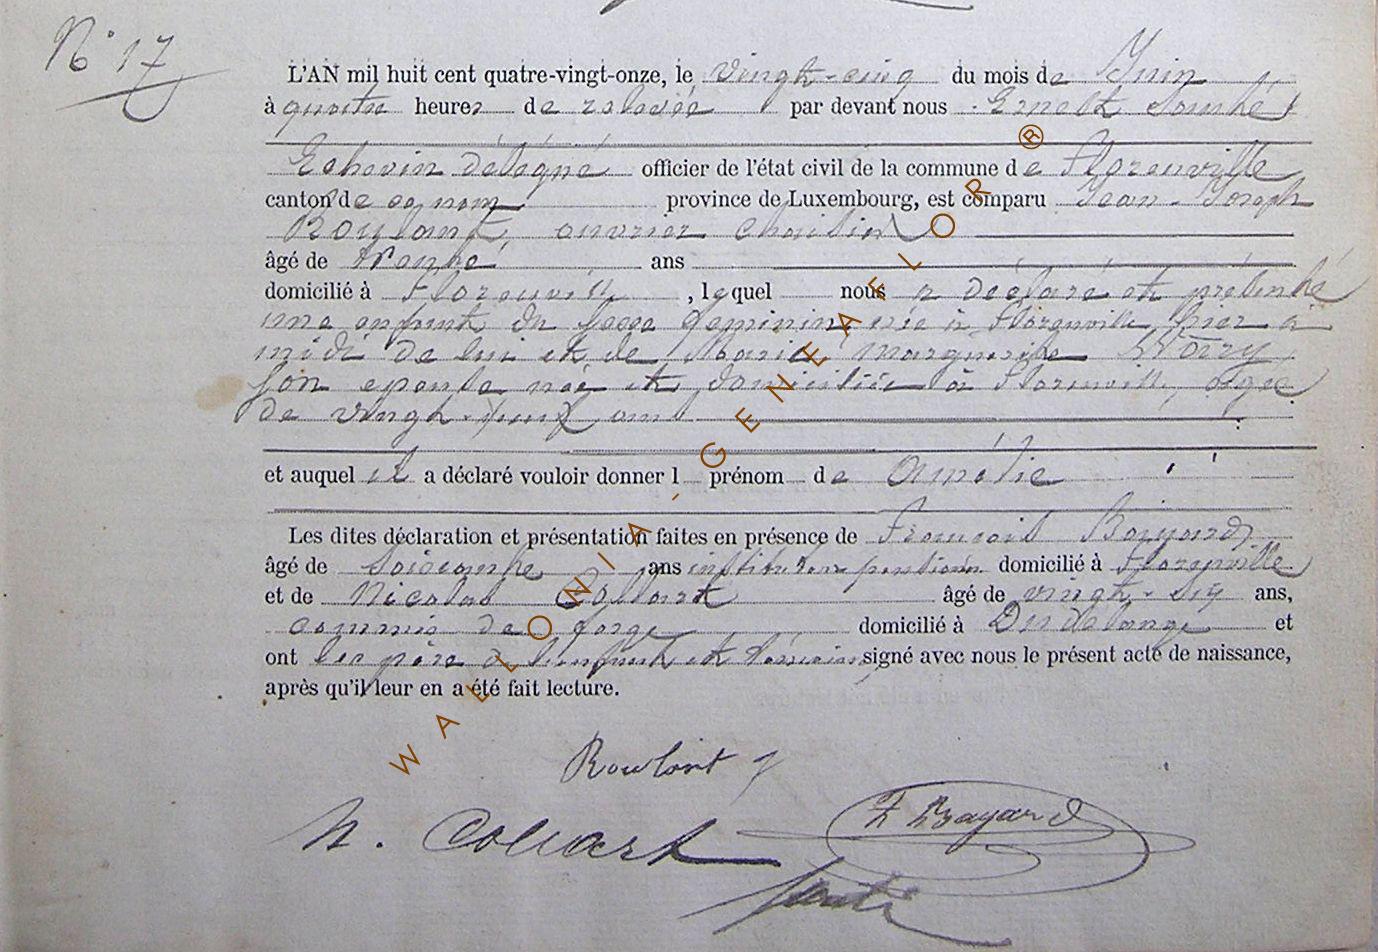 N° 17
L'AN mil huit cent quatre-vingt-onze, le vingt-cinq du mois de Juin
à quatre heures de relevée par devant nous Ernest
Echevin délégué officier de l'état civil de la commune de Florenville
canton de ce nom province de Luxembourg, est comparu Jean-Joseph
Roulant, ouvrier
âgé de trente ans
domicilié à Florenville, lequel nous a déclaré et présenté
une enfant du sexe feminin née à Florenville hier à
midi de lui et de Marie Marguerite
son épouse née et domiciliée à Florenville, âgée
de vingt-neuf ans
et auquel il a déclaré vouloir donner l prénom de Amélie
Les dites déclaration et présentation faites en présence de François Bayard
âgé de soixante ans instituteur pensionné domicilié à Florenville
et de Nicolas Collart âgé de vingt-six ans,
commis de forge domicilié à Dudelange et
ont les père de l'enfant et témoins signé avec nous le présent acte de naissance,
après qu'il leur en a été fait lecture.
Roulant J
N. Collart F Bayard
WALLONIA-GENEAFLOR®